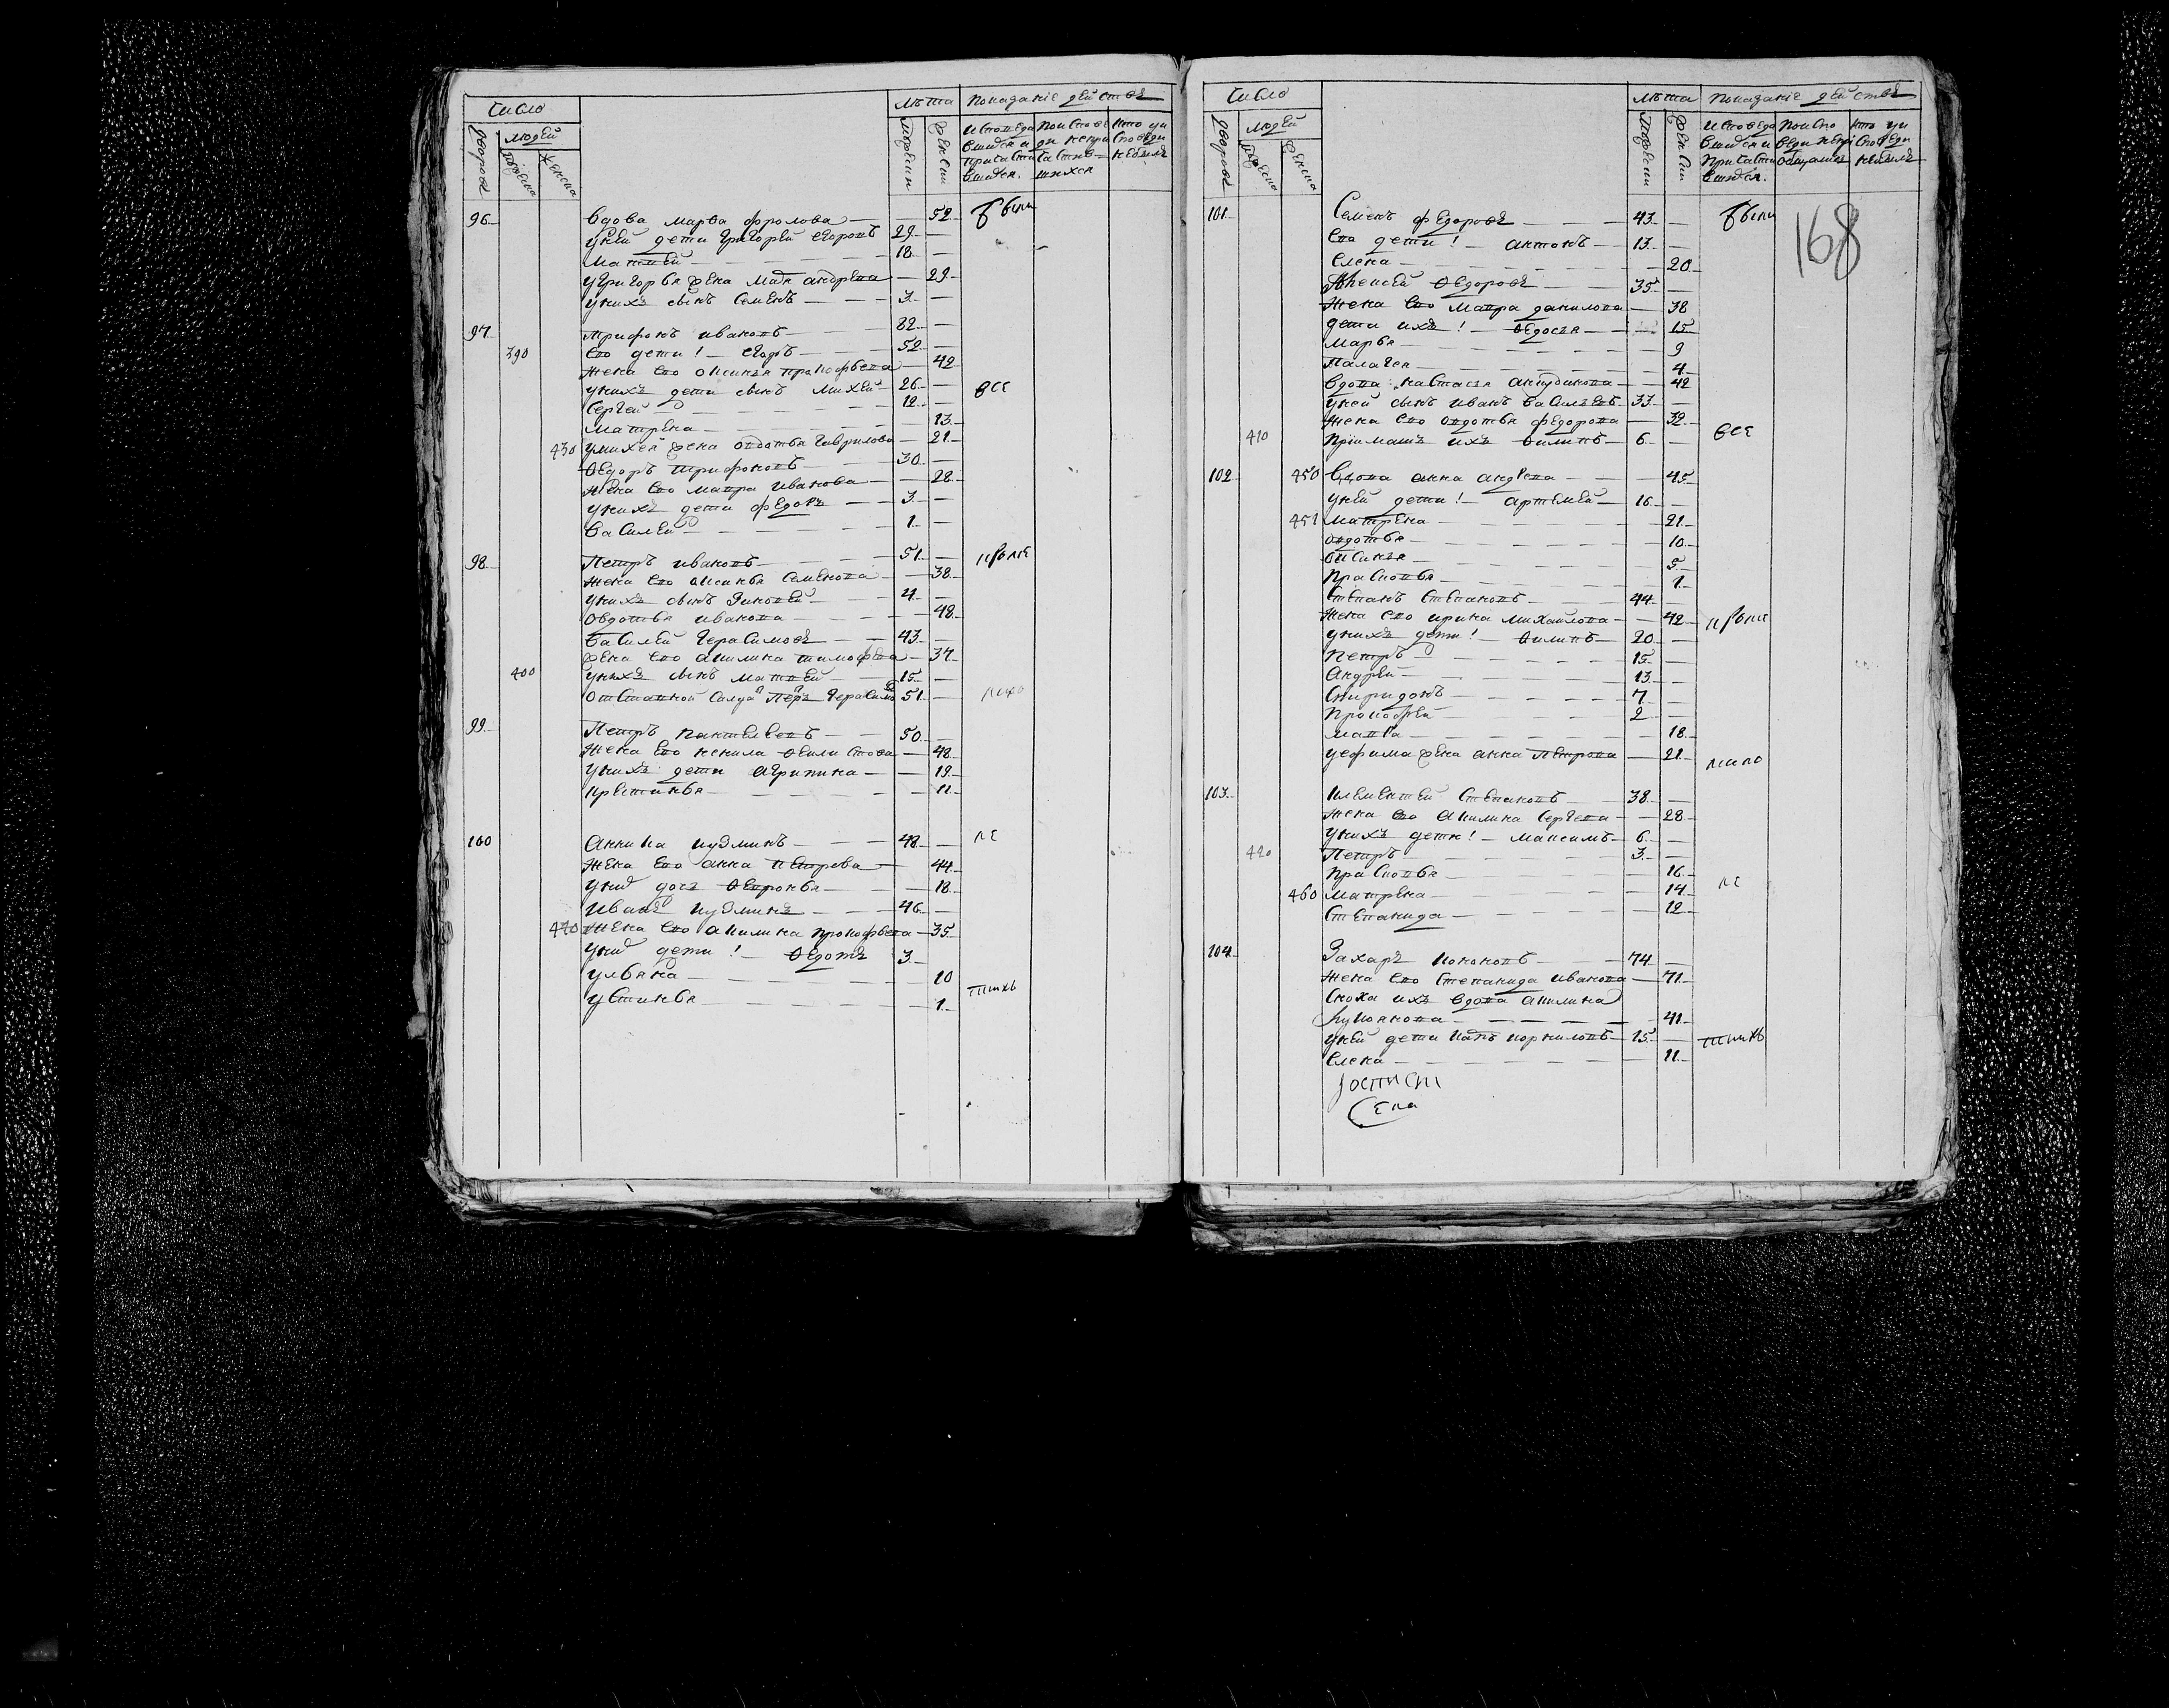 Число
Людей
Лѣта
Показанїе действъ
дворовъ
мужеска
женска
мужески
женски
исповеда вшихся и прича сти вшихся.
96.
вдова Марѳа Фролова — — 52 были
у ней дети Григорей Егоровъ 29 —
Матвей — 18 —
у Григорья жена Мавра Андреева — 29
у нихъ сынъ Семенъ — 3 —
97
Трифонъ Ивановъ — 82 —
390 Ево дети! — Егоръ — 52 —
Жена Ево Аксинья Прокофьева — 42
у нихъ дети сынъ Михей 26 — все
Сергей — 12 —
Матрена — 13
430 у Михея жена Овдотья Гаврилова — 21
Ѳедоръ Трифоновъ — 30 —
Жена Ево Мавра Иванова — 28
у нихъ дети Федоръ — 3 —
Василей — 1 —
98
Петръ Ивановъ — 51 —
Жена Ево Аксинья Семенова — 38
у нихъ сынъ Зиновей — 4 —
Овдотья Иванова — 48
Василей Герасимовъ — 43 —
жена Ево Акилина Тимофева — 37
400 у нихъ сынъ Матвей — 15 —
Отставной Салда Петръ Герасимо 51 —
99
Петръ Пантелеевъ — 50 —
Жена Ево Ненила Ѳеилистова — 48
у нихъ дети Агрипина — — 19
Крестинья — 11
100
Аники Кузминъ — 48 — ле
Жена Ево Анна Петрова — 44
у нихъ дочь Ѳевронья — 18
Иванъ Кузминъ — 46 —
440 Жена Ево Акилина Прокофьева — 35
у нихъ дети! — Ѳедотъ 3
Ульяна — 10
Устинья — 1
Число
Людей
Лѣта
Показанїе действъ
дворовъ
мужеска
женска
мужески
женски
168
101
Семенъ Федоровъ — 43 — были
Ево дети! — Антонъ — 13 —
Елена — 20
Алексей Ѳедоровъ — 35 —
Жена Ево Мавра Данилова — 38
дети ихъ! — Ѳедосья — 15
Марья — 9
Палагея — 4
вдова Настасья — 42
у ней сынъ Иванъ Васильевъ 33 —
Жена Ево Овдотья Федорова — 32
410 Прїимашъ ихъ Филипъ — 6 — все
102
450 вдова Анна Андрева — 45
у ней дети! — Артемей — 16 —
451 Матрена — 21
Овдотья — 10
Аксинья — 5
Прасковья — 1
Степанъ Степановъ — 44 —
Жена Ево Ирина Михайлова — 42
у нихъ дети! — Филипъ — 20 —
Петръ — 15 —
Андрей — 13 —
Спиридонъ — 7 —
Прокофей — 2 —
Мавра — 18
жена Анна Петрова — 21
103
Клементей Степановъ — 38 —
Жена Ево Акилина Сергева — 28
у нихъ дети! — Максимъ — 6 —
420 Петръ — 3 —
Прасковья — 16
460 Матрена — 14 ле
Степанида — 12
104
Захаръ Кононовъ — 74 —
Жена Ево Степанида Иванова — 71
Сноха ихъ вдова Акилина
Лукоянова — 41
у ней дети Карпъ Корниловъ 15 —
Елена — 11